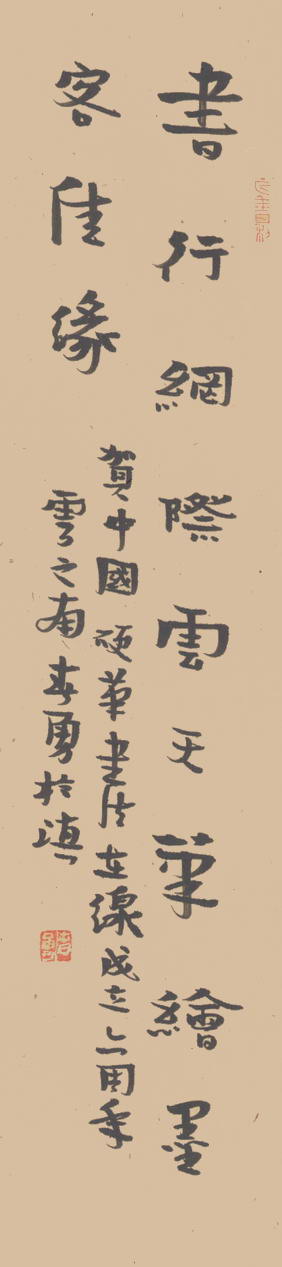 書行網際雲天筆繪墨
客佳緣
賀中國硬筆書法在線成立六周年
雲之南春勇於滇